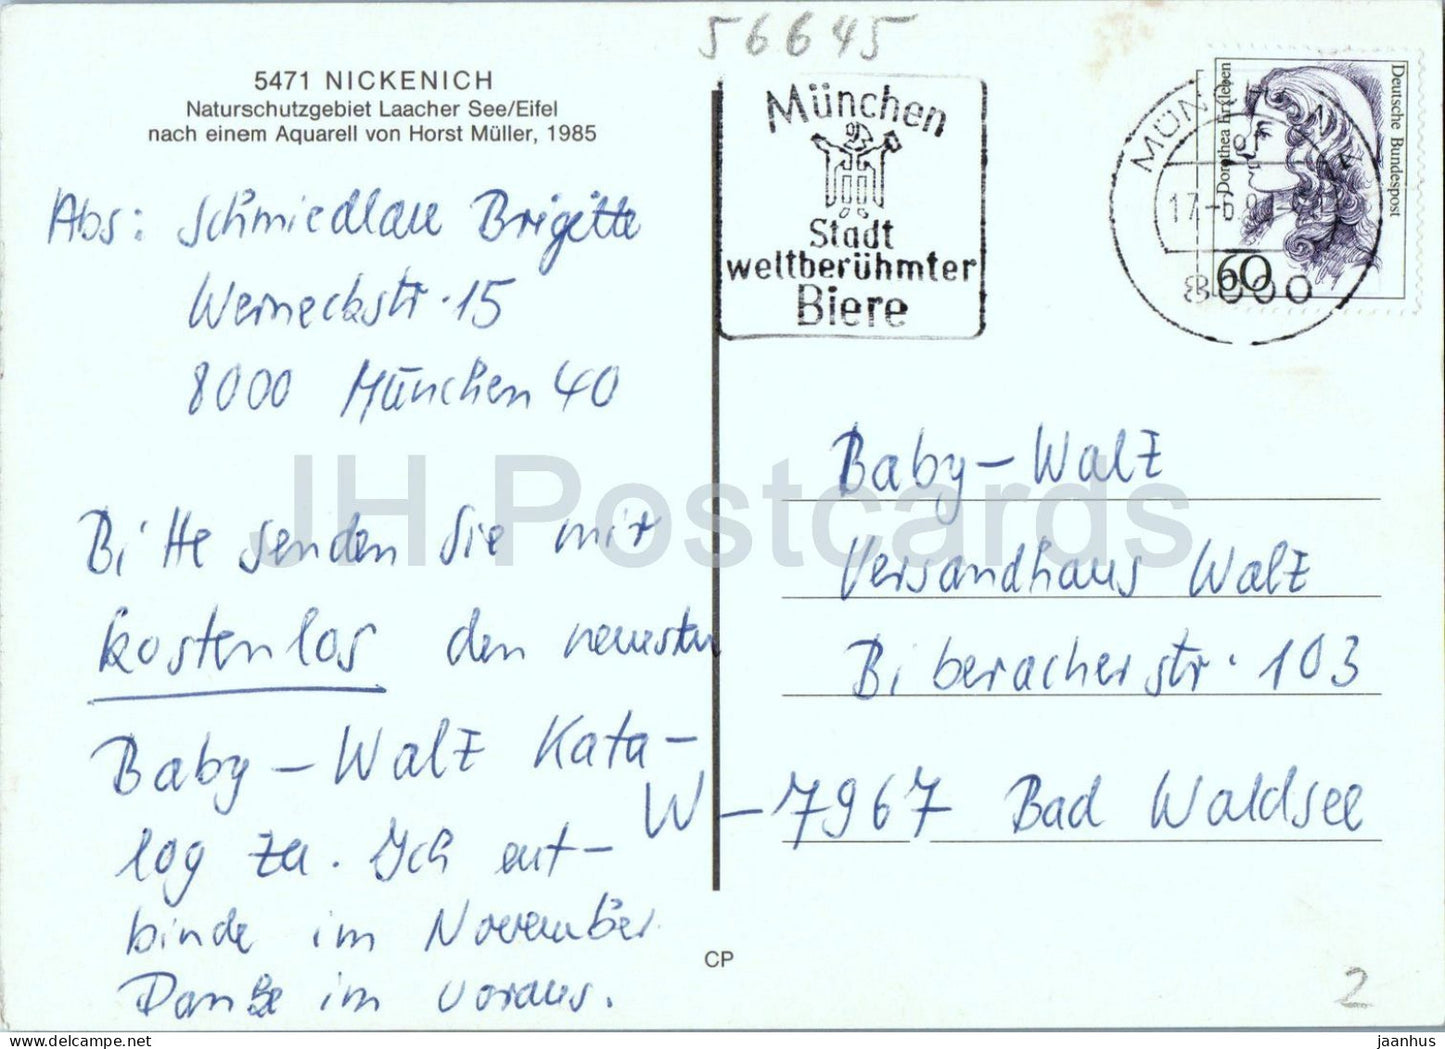 56645
5471 NICKENICH
Naturschutzgebiet Laacher See/Eifel
nach einem Aquarell von Horst Müller, 1985
München
Stadt
weltberühmter
Biere
MÜNCHEN
8000
Deutsche Bundespost
Dorothea Erxleben
60
Abs: Schmiedlau Brigitte
Werneckstr. 15
8000 München 40
Bitte senden Sie mir
kostenlos den neuesten
Baby-Walz Kata-
log zu. Ich ent-
binde im November.
Danke im voraus.
Baby-Walz
Versandhaus Walz
Biberacherstr. 103
W-7967 Bad Waldsee
CP
2
JH Postcards
jaanhus